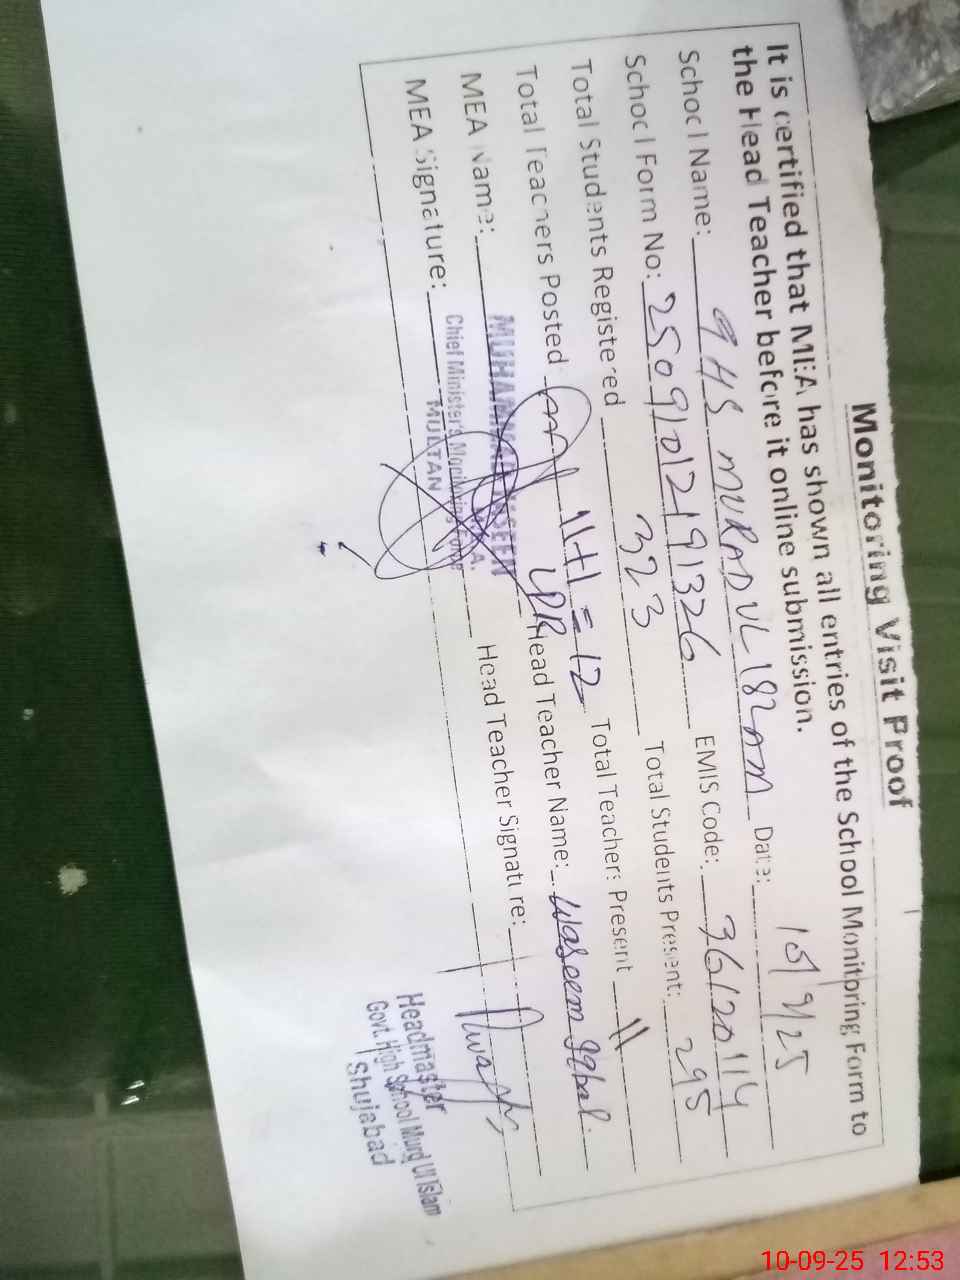 Monitoring Visit Proof
It is certified that MEA has shown all entries of the School Monitoring Form to
the Head Teacher before it online submission.
School Name: GHS MURAD UL ISLAM Date: 10/9/25
School Form No: 25091012191326 EMIS Code: 36120114
Total Students Registered 323 Total Students Present: 295
Total Teachers Posted 11+1=12 Total Teachers Present 11
MEA Name: Head Teacher Name: Waseem Iqbal.
MEA Signature: Head Teacher Signature:
MUHAMMAD
Chief Minister's Monitoring Force
MULTAN
Headmaster
Govt. High School Murd Ul Islam
Shujabad
10-09-25 12:53